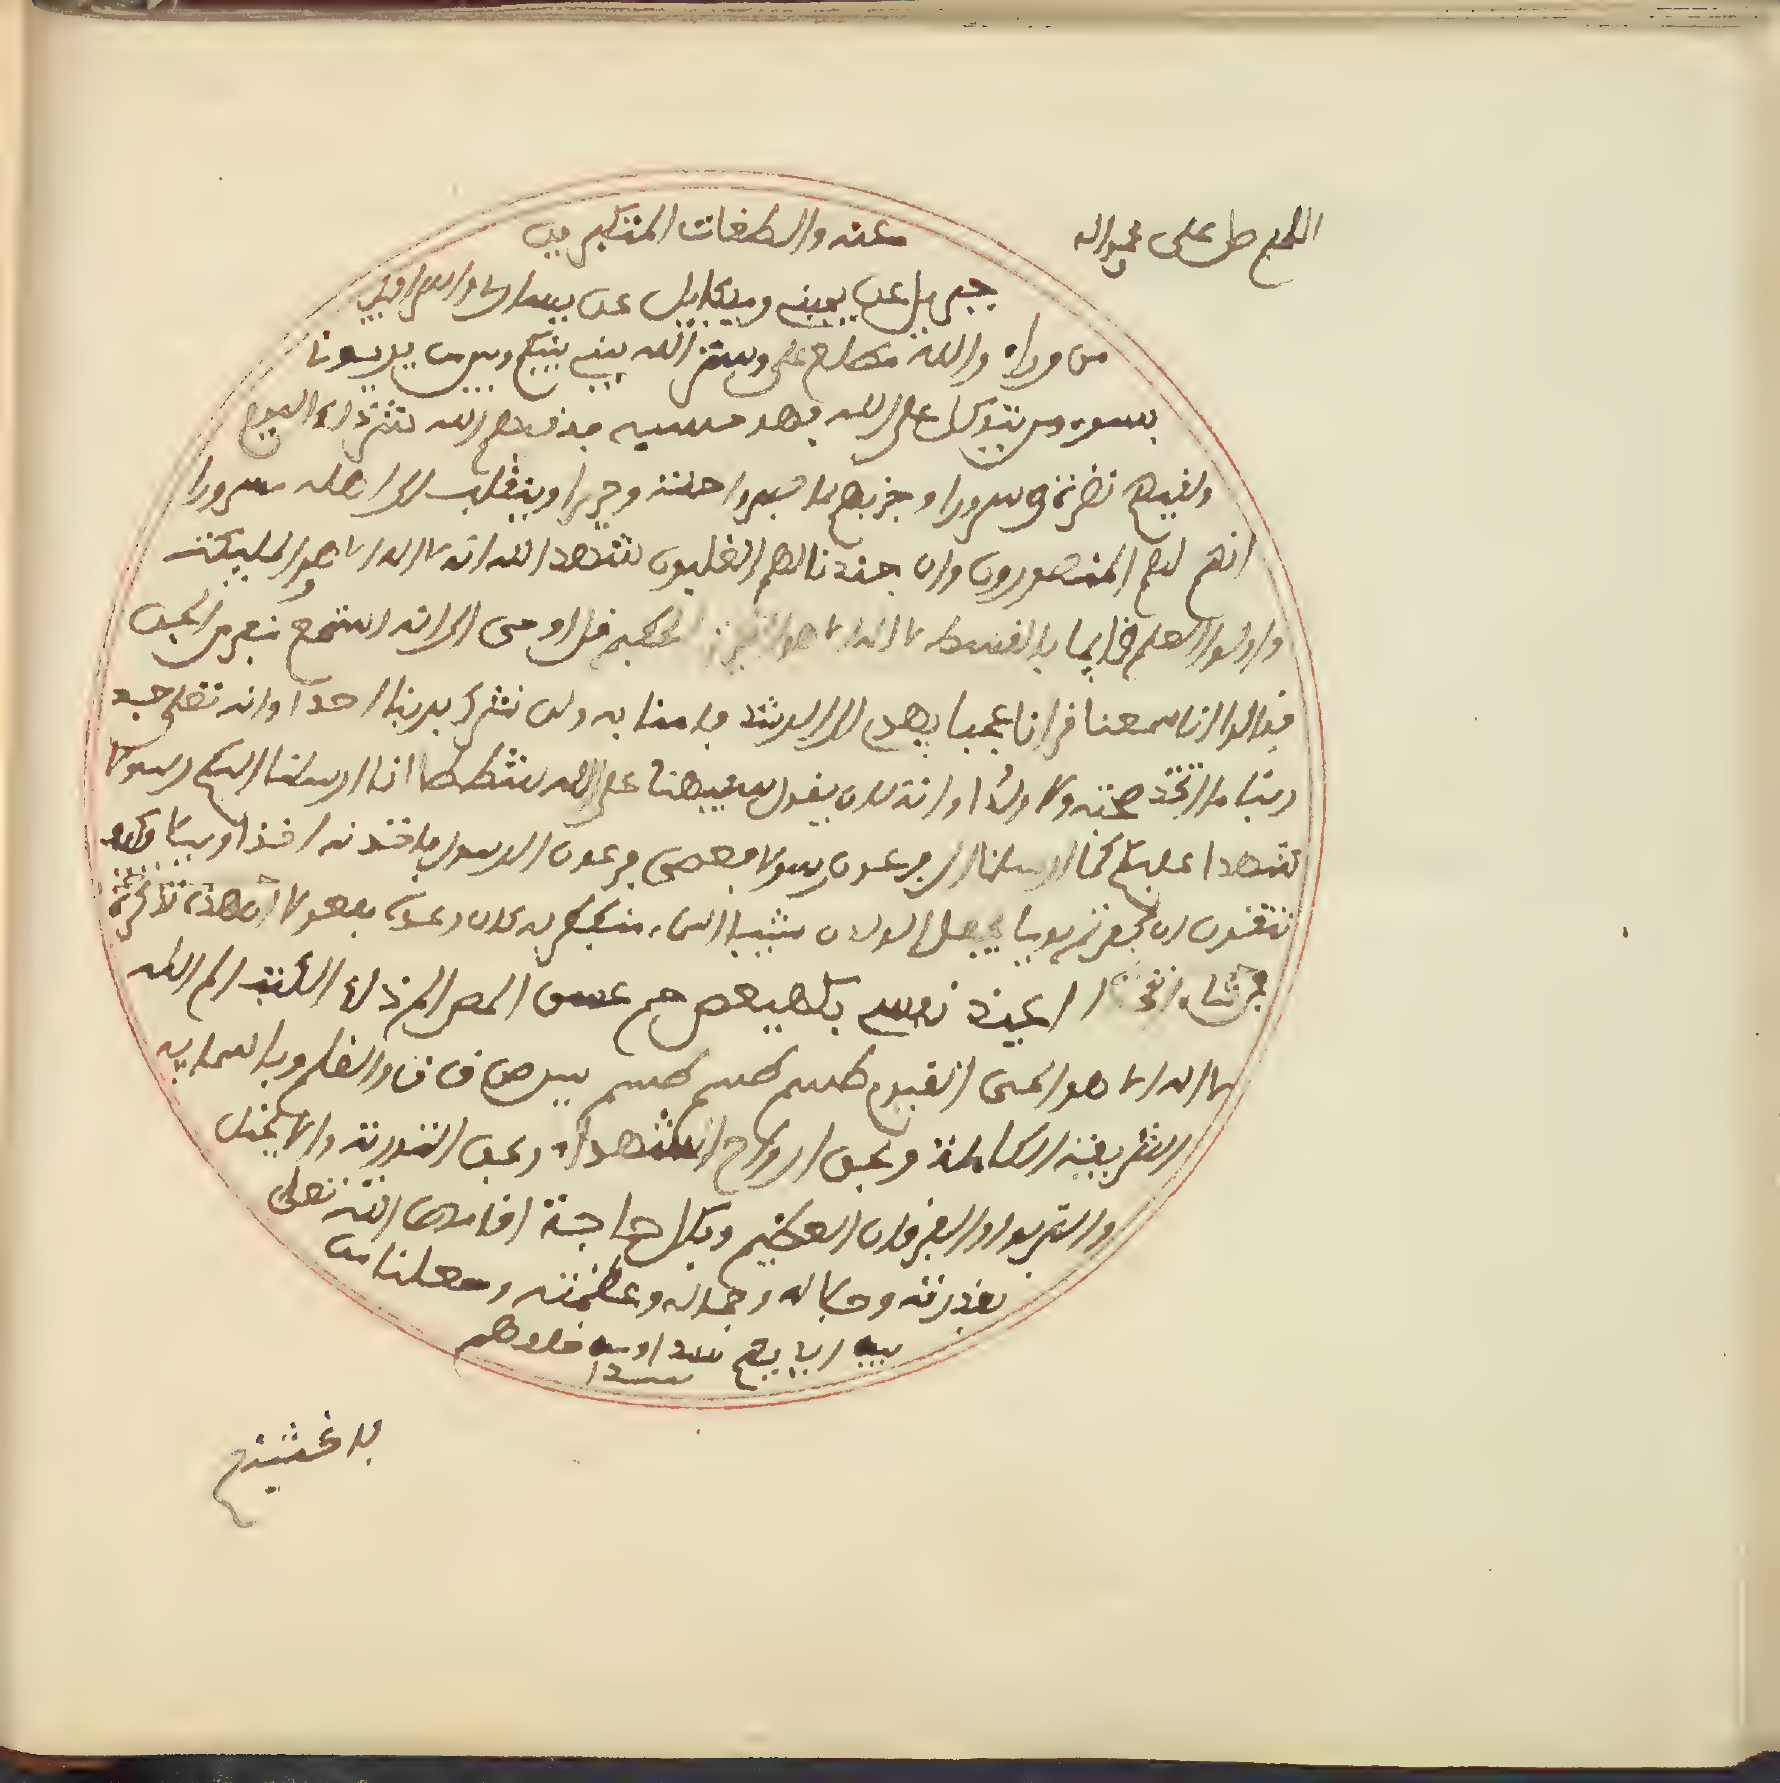 اللهم صل على محمد واله
عنه والطغات المتكبرين
جبريل عن يمينه وميكايل عن يساره واسرافيل
من وراه والله مطلع على وستر الله بيني بينكم وبين من يريدونا
بسوء ومن يتوكل على الله فهو حسبه فوقيهم الله شر ذلك اليوم
ولقيهم نضرة وسرورا وجزيهم بما صبروا جنة وحريرا وينقلب الى اهله مسرورا
انهم لهم المنصورون وان جندنا لهم الغلبون شهد الله انه لا اله الا هو والمليكة
واولوا العلم قايما بالقسط لا اله الا هو العزيز الحكيم قل اوحى الى انه استمع نفر من الجن
فقالوا انا سمعنا قرانا عجبا يهدى الى الرشد فامنا به ولن نشرك بربنا احدا وانه تعلى جد
ربنا ما اتخذ صحبة ولا ولدا وانه كان يقول سفيهنا على الله شططا انا ارسلنا اليكم رسولا
شهدا عليكم كما ارسلنا الى فرعون رسولا فعصى فرعون الرسول فاخذنه اخذا وبيلا فكيف
تتقون ان كفرتم يوما يجعل الولدان شيبا السماء منفطر به كان وعده مفعولا ان هذه تذكرة
فمن شاء اتخذ اعيذ نفسي بكهيعص حم عسق المص الم ذلك الكتب الم الله
لا اله الا هو الحى القيوم طسم طسم طسم يس ص ق ن والقلم وباسمايه
الشريفة الكاملة وبحق ارواح الشهداء وبحق التورية والانجيل
والزبور والفرقان العظيم وبكل حاجة اقامها الله تعلى
بقدرته وجلاله وجماله وعظمته وجعلنا من
بين ايديهم سدا ومن خلفهم
سدا
فاغشينهم